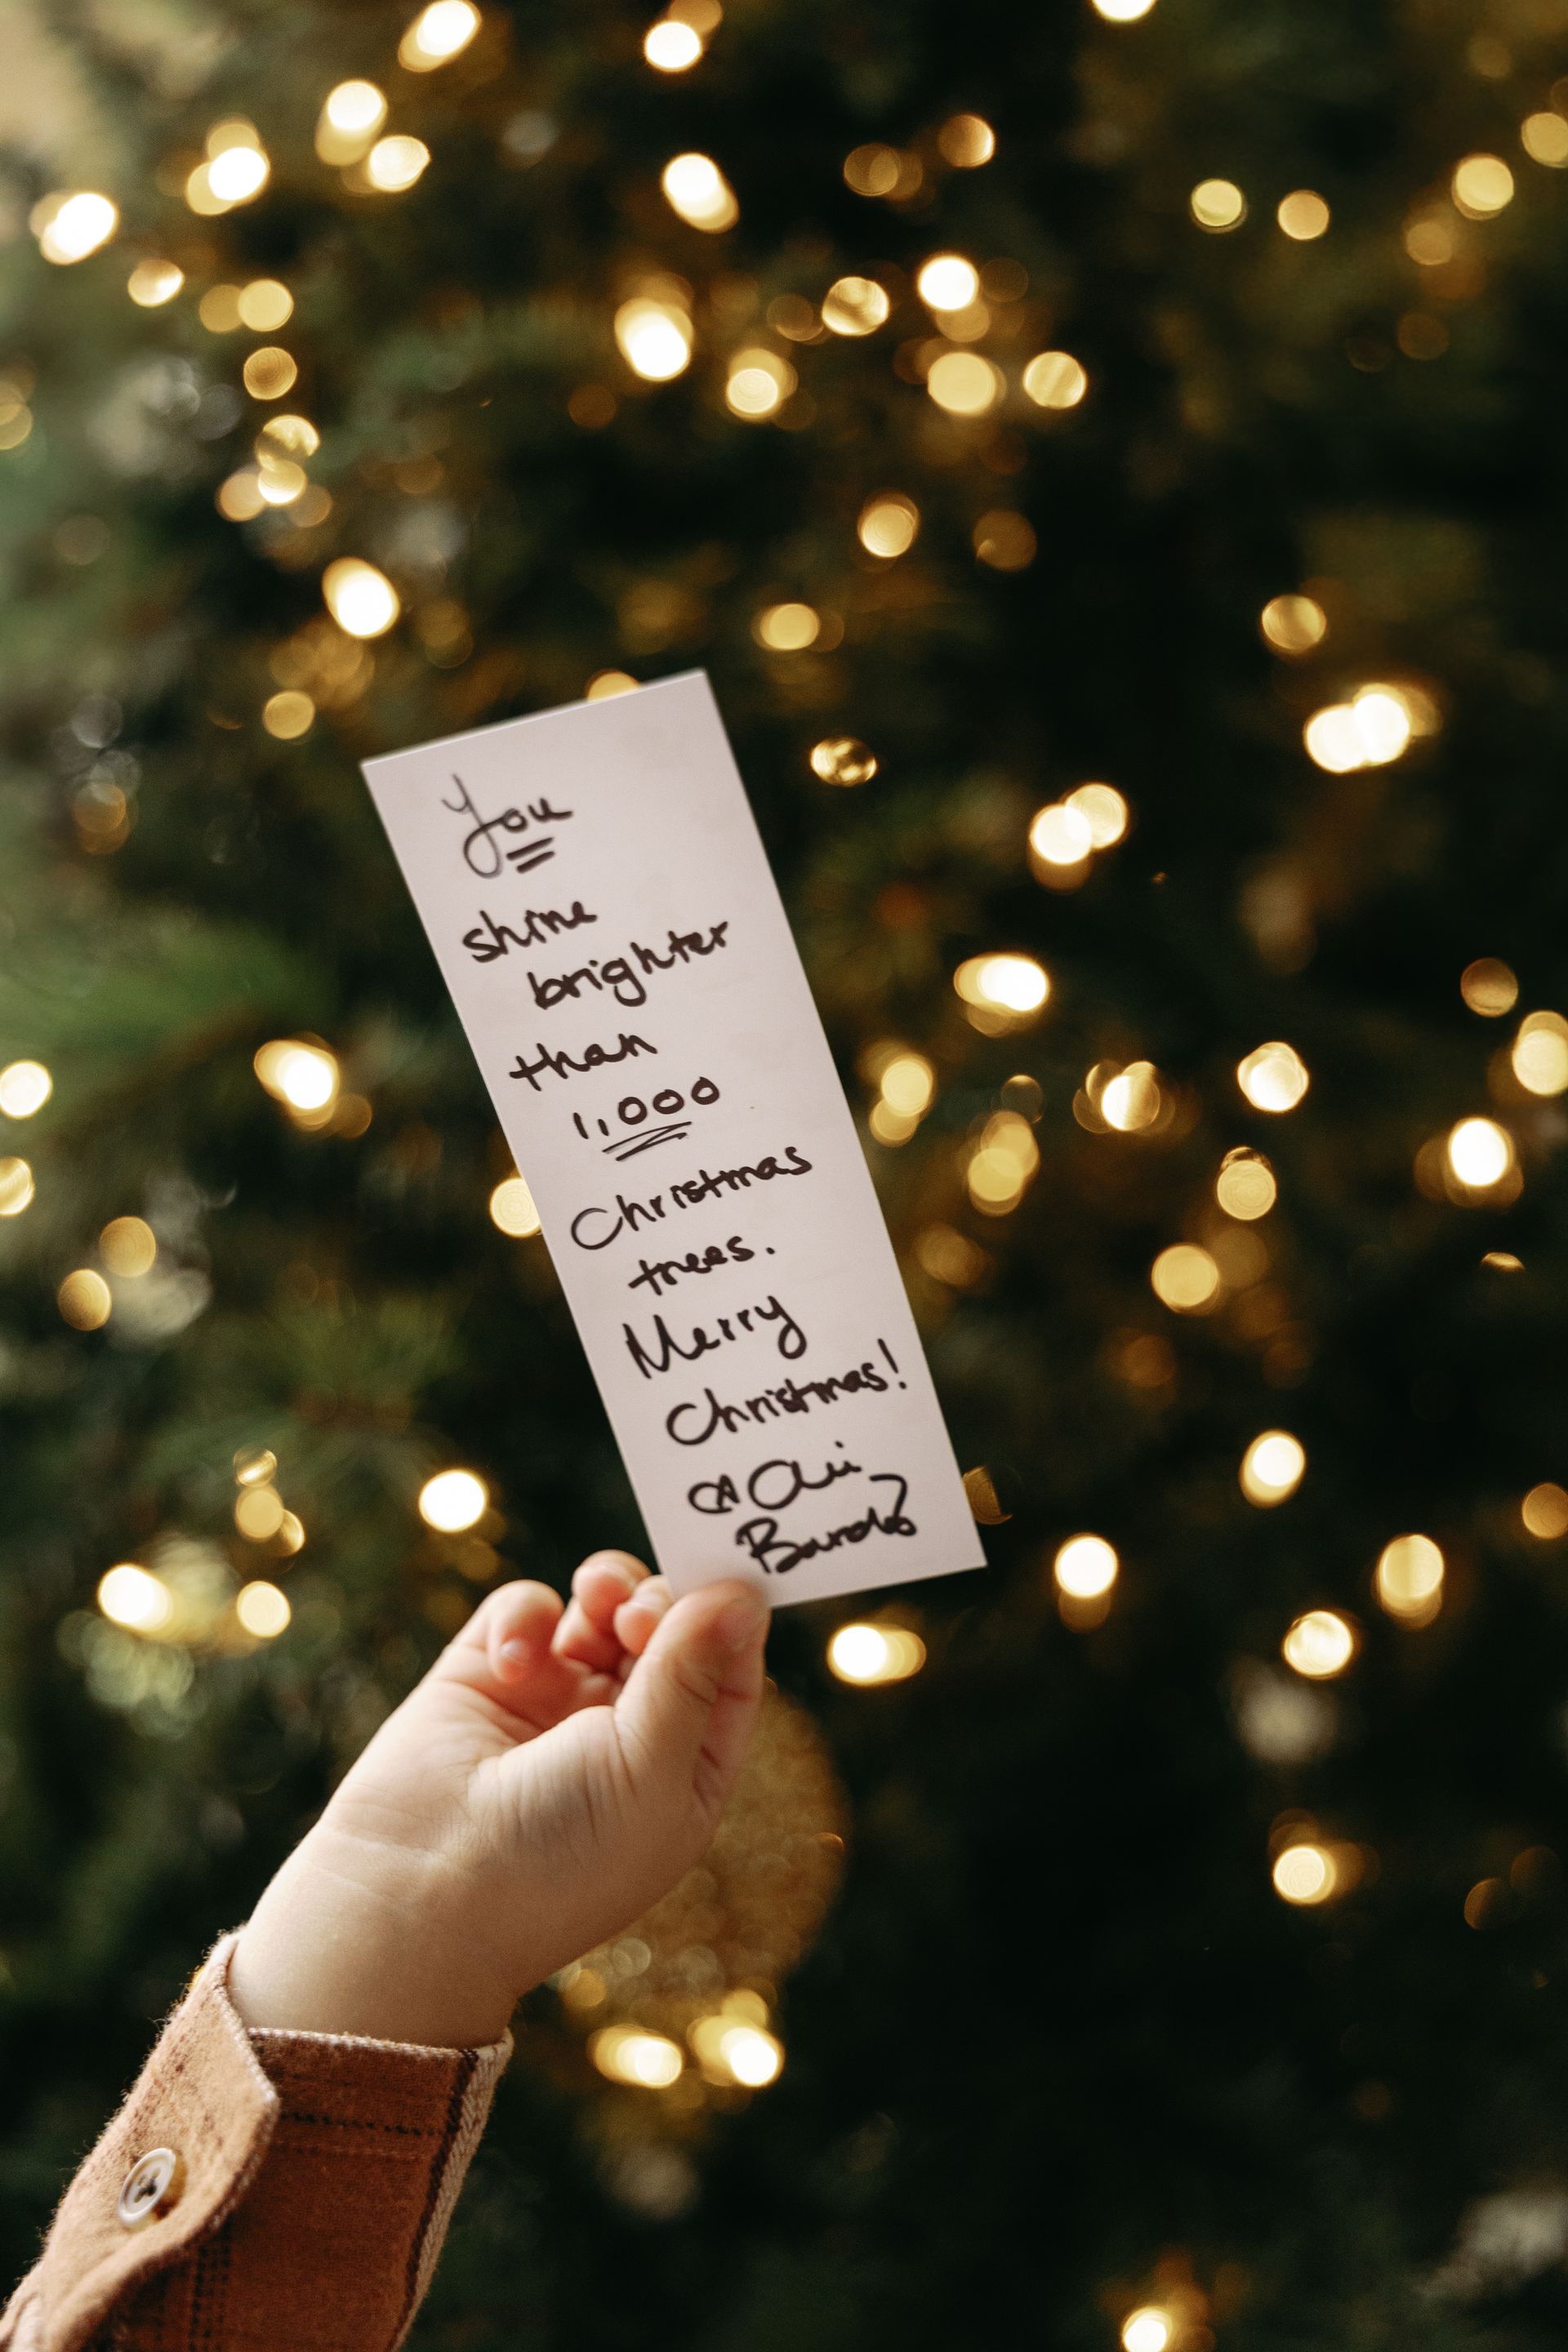 You
shine
brighter
than
1,000
Christmas
trees.
Merry
Christmas!